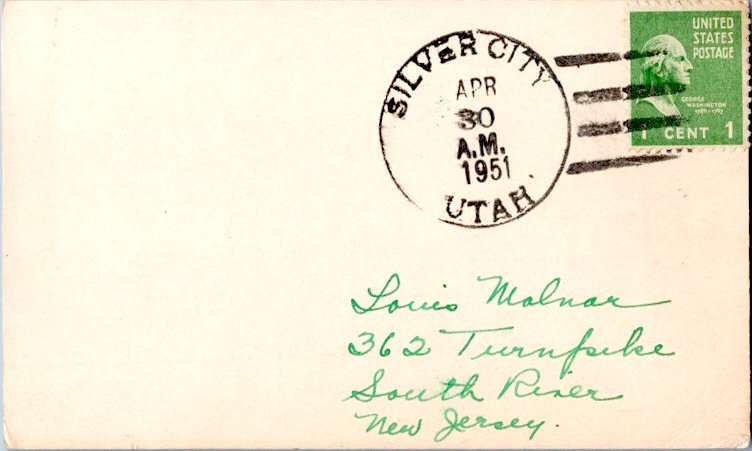 SILVER CITY
APR
30
A.M.
1951
UTAH
UNITED
STATES
POSTAGE
GEORGE
WASHINGTON
1789-1797
1 CENT 1
Louis Molnar
362 Turnpike
South River
New Jersey.